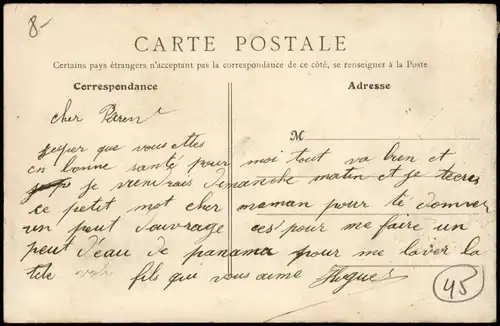 8-
CARTE POSTALE
Certains pays étrangers n'acceptant pas la correspondance de ce côté, se renseigner à la Poste
Correspondance
Adresse
M
Cher Paren
jesper que vous ettes
en bonne santé pour moi tout va bien et
je viendrais dimanche matin et je tecris
ce petit mot cher maman pour te donner
un peut d'ouvrage ces pour me faire un
peut d'eau de panama pour me laver la
tete
fils qui vous aime Hugues
45